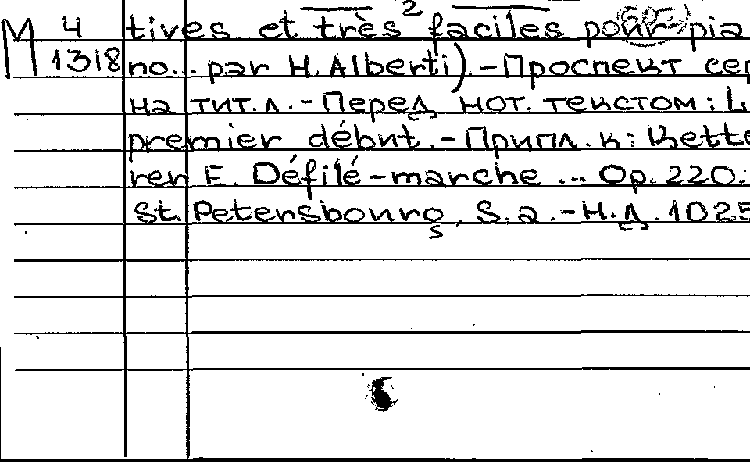 M 4 tives et très faciles pour pia
1318 no... par H. Alberti).-Проспект сер
на тит.л.-Перед нот. текстом: L
premier début.-Припл. к: Kette
rer E. Défilé-marche ... Op. 220.
St. Petersbourg, S.a.-Н.Д. 1025